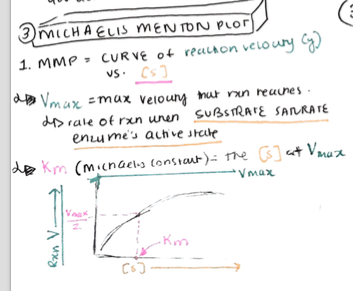 ③ MICHAELIS MENTON PLOT
1. MMP = CURVE of reaction velouty (y)
vs. [S]
Vmax = max velouny that rxn reaches.
rate of rxn when SUBSTRATE SATURATE
enzyme's active state
Km (Michaelis constant) = the [S] at Vmax
Vmax
Vmax
2
Rxn V
Km
[S]